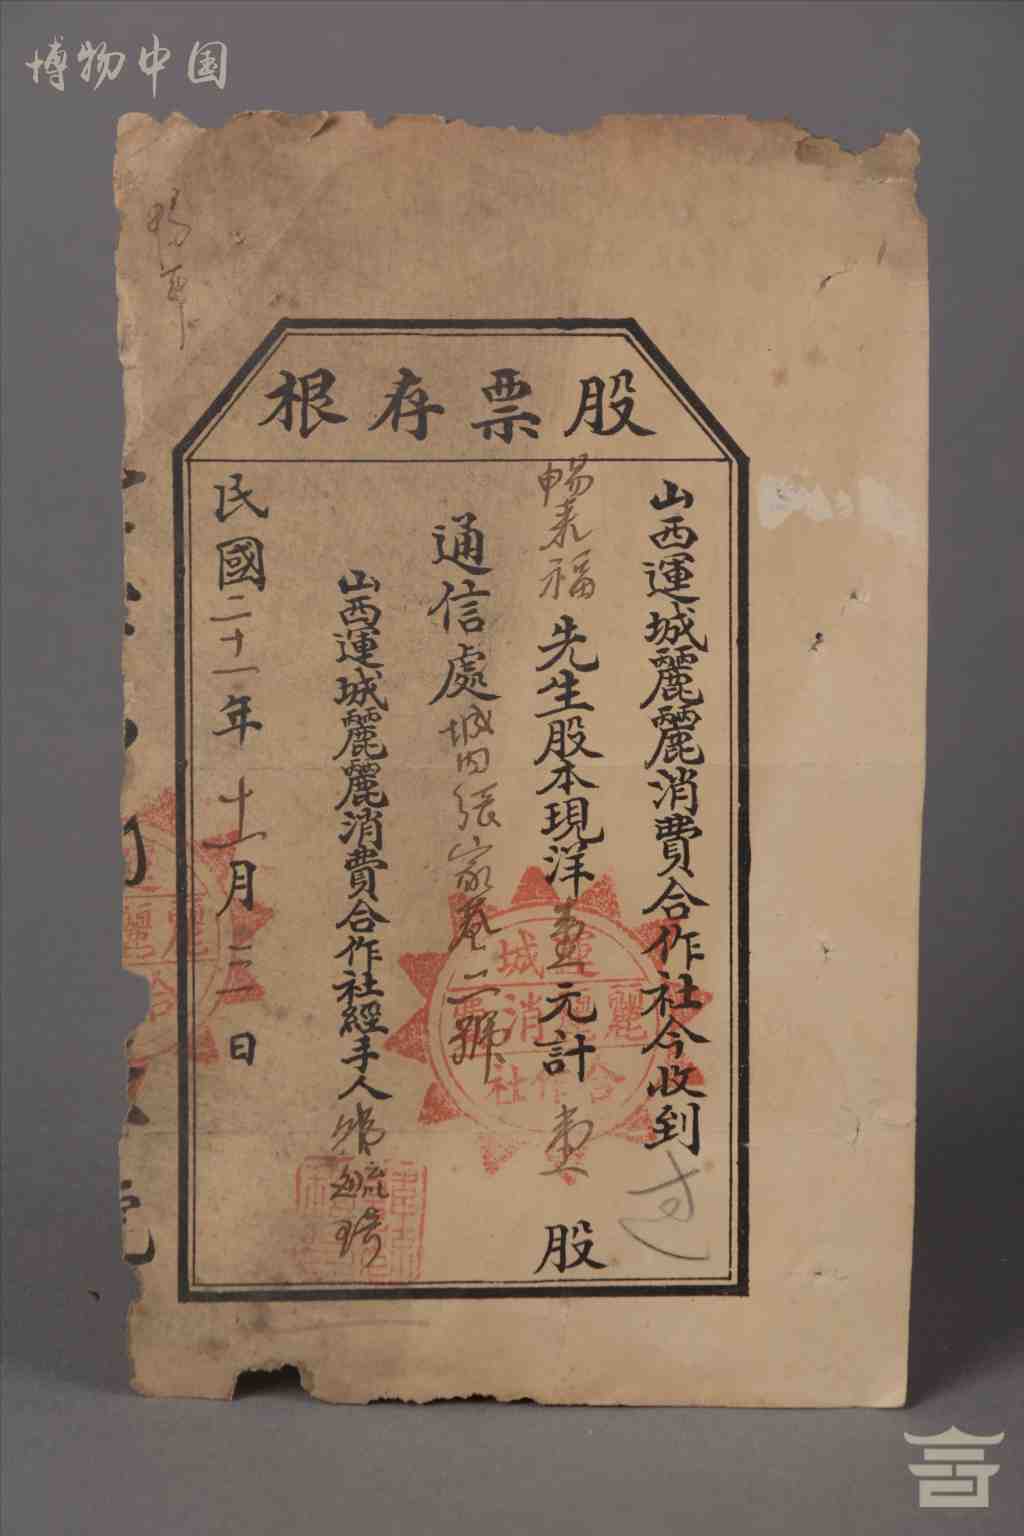 博物中国
股票存根
山西運城麗麗消費合作社今收到
暢 福先生股本現洋壹元計壹股
通信處城內張家巷二號
山西運城麗麗消費合作社經手人
民國二十一年十一月二日
運城
麗麗消費
合作社